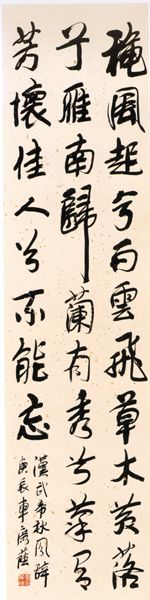 穐風起兮白雲飛草木黃落
兮雁南歸蘭有秀兮菊有
芳懷佳人兮不能忘
漢武帝秋風辭
庚辰車廣蔭